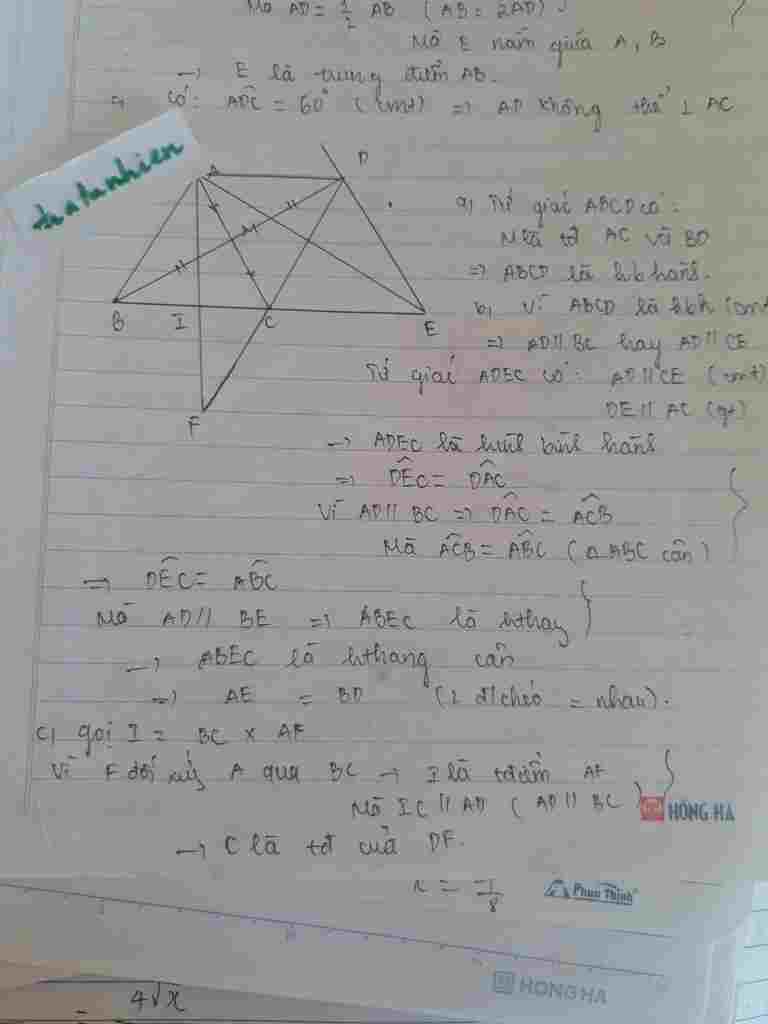 Mà AD = 1/2 AB (AB = 2AD).
Mà E nằm giữa A, B
→ E là trung điểm AB.
⇒ Có: ADC = 60° (cmt) ⇒ AD không thể ⊥ AC
A D
M
B I C E
F
a) Tứ giác ABCD có:
M là tđ AC và BD
⇒ ABCD là hbhành.
b) Vì ABCD là hbh (cmt
⇒ AD // BC hay AD // CE
Tứ giác ADEC có: AD // CE (cmt)
DE // AC (gt)
→ ADEC là hình bình hành
⇒ DEC = DAC
Vì AD // BC ⇒ DAC = ACB
Mà ACB = ABC (Δ ABC cân)
→ DEC = ABC
Mà AD // BE ⇒ ABEC là hthag
→ ABEC là hthang cân
⇒ AE = BD (2 đ/chéo = nhau).
c) gọi I = BC x AF
Vì F đối xứg A qua BC → I là tđiểm AF
Mà IC // AD (AD // BC)
→ C là tđ của DF.
HỒNG HÀ
x = -1/8
HONG HA
4√x
=